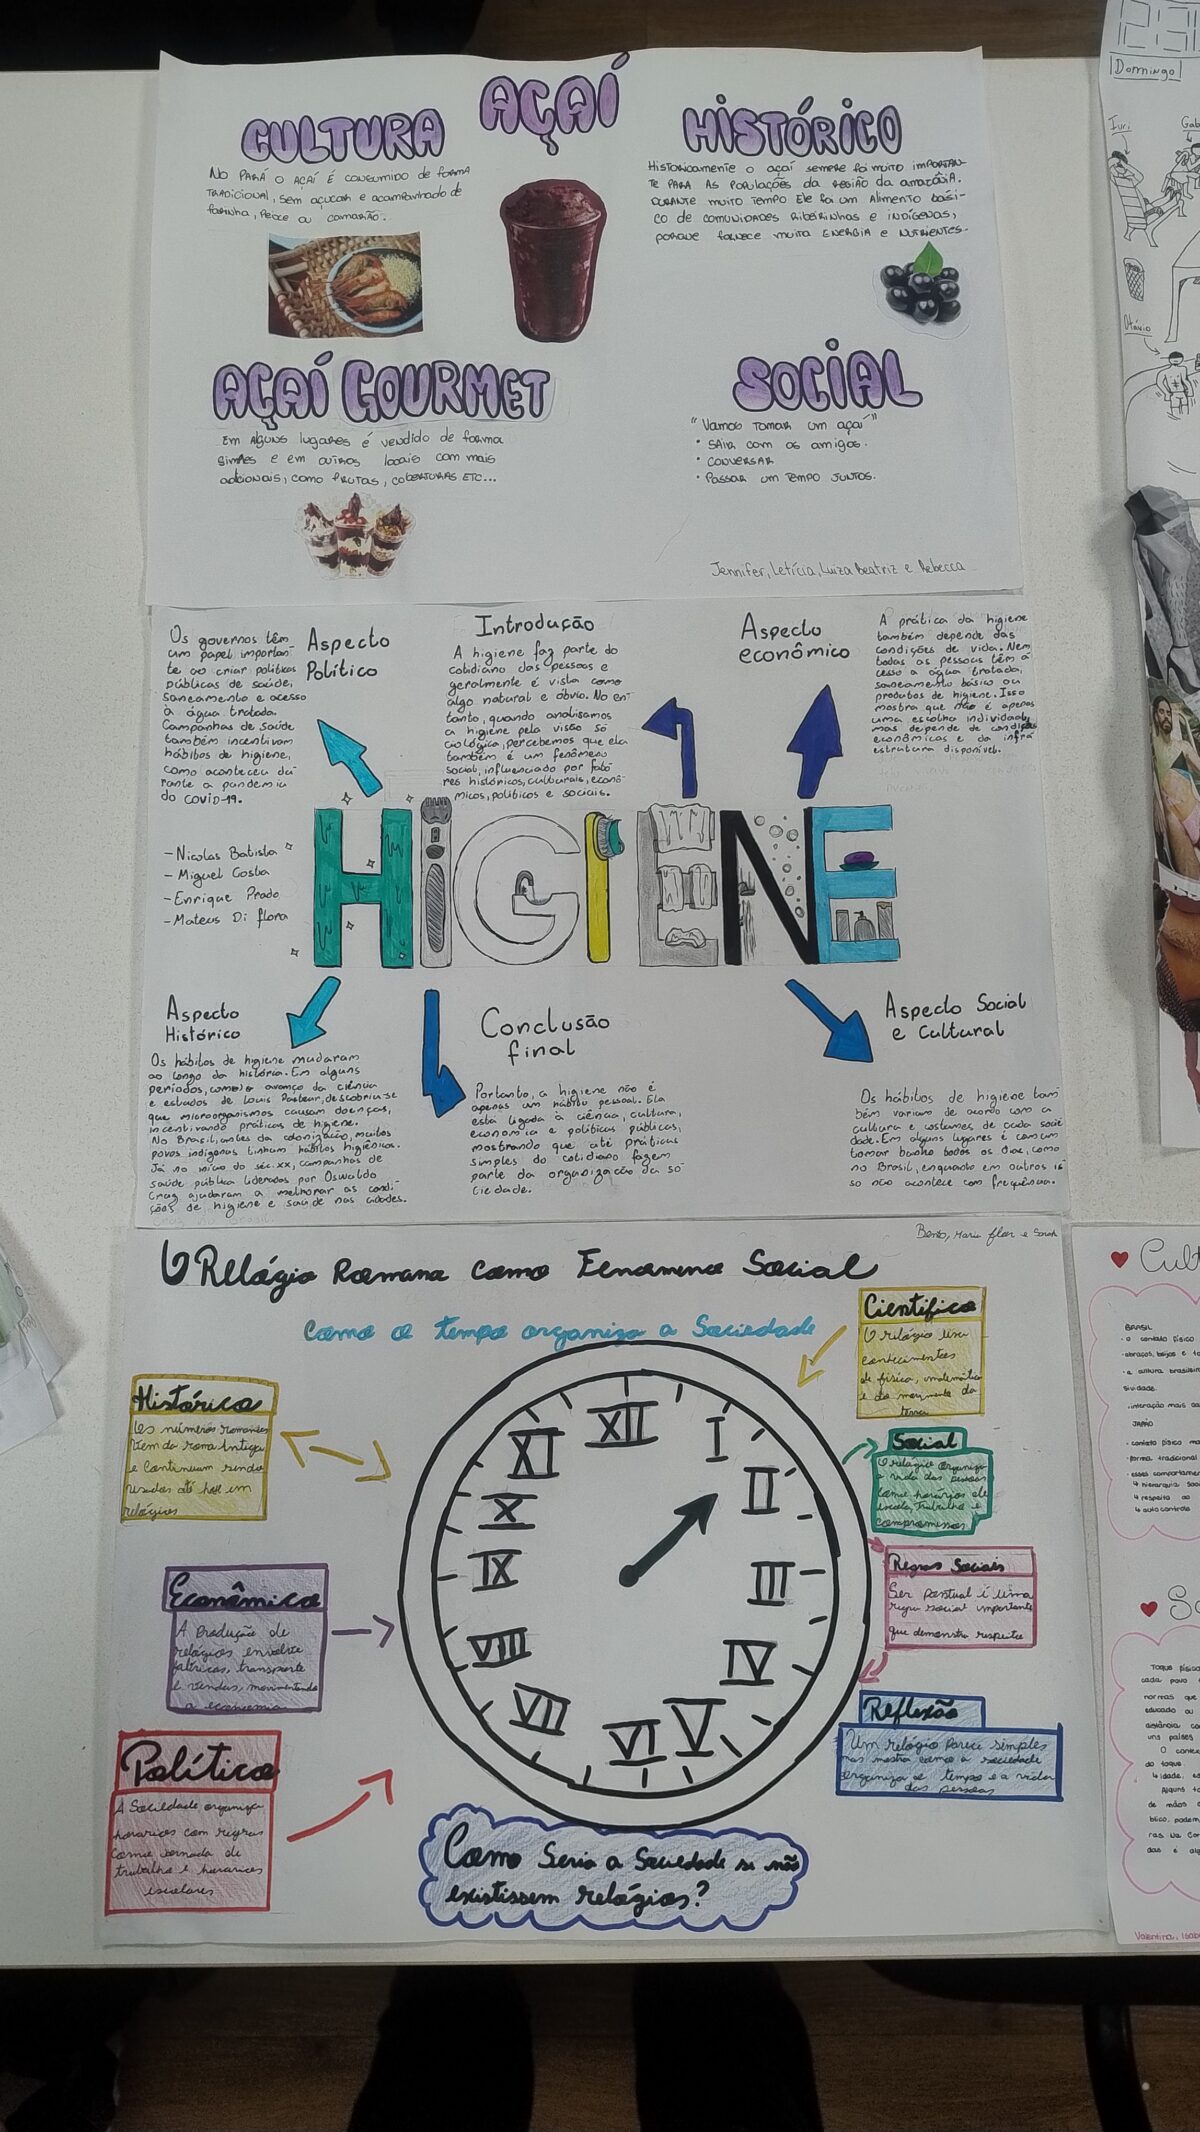 AÇAÍ
CULTURA
NO PARÁ O AÇAÍ É CONSUMIDO DE FORMA
TRADICIONAL, SEM AÇUCAR E ACOMPANHADO DE
FARINHA, PEIXE OU CAMARÃO.
HISTÓRICO
HISTORICAMENTE O AÇAÍ SEMPRE FOI MUITO IMPORTAN-
TE PARA AS POPULAÇÕES DA REGIÃO DA AMAZÔNIA.
DURANTE MUITO TEMPO ELE FOI UM ALIMENTO BÁSI-
CO DE COMUNIDADES RIBEIRINHAS E INDÍGENAS,
PORQUE FORNECE MUITA ENERGIA E NUTRIENTES.
AÇAÍ GOURMET
EM ALGUNS LUGARES É VENDIDO DE FORMA
E EM OUTROS LOCAIS COM MAIS
ADICIONAIS, COMO FRUTAS, COBERTURAS ETC...
SOCIAL
"VAMOS TOMAR UM AÇAÍ"
• SAIR COM OS AMIGOS.
• CONVERSAR
• PASSAR UM TEMPO JUNTOS.
Jennifer, Letícia, Luiza Beatriz e Rebecca
Aspecto
Político
Os governos têm
um papel importan-
te ao criar políticas
públicas de saúde,
saneamento e acesso
à água tratada.
Campanhas de saúde
também incentivam
hábitos de higiene,
como aconteceu du-
rante a pandemia
do covid-19.
Introdução
A higiene faz parte do
cotidiano das pessoas e
geralmente é vista como
algo natural e óbvio. No en-
tanto, quando analisamos
a higiene pela visão so
ciológica, percebemos que ela
também é um fenômeno
social, influenciado por fato
res históricos, culturais, econô-
micos, políticos e sociais.
Aspecto
econômico
A prática da higiene
também depende das
condições de vida. Nem
todas as pessoas têm a
cesso a água tratada,
saneamento básico ou
produtos de higiene. Isso
mostra que não é apenas
uma escolha individual,
mas depende de condições
econômicas e da infra
estrutura disponível.
- Nicolas Batista
- Miguel Costa
- Enrique Prado
- Mateus Di flora
HIGIENE
Aspecto
Histórico
Os hábitos de higiene mudaram
ao longo da história. Em alguns
períodos, como o avanço da ciência
e estudos de Louis Pasteur, descobriu-se
que microorganismos causam doenças,
incentivando práticas de higiene.
No Brasil, antes da colonização, muitos
povos indígenas tinham hábitos higiênicos.
Já no início do séc. XX, campanhas de
saúde pública lideradas por Oswaldo
Cruz ajudaram a melhorar as condi-
ções de higiene e saúde nas cidades.
Conclusão
final
Portanto, a higiene não é
apenas um hábito pessoal. Ela
está ligada à ciência, cultura,
economia e políticas públicas,
mostrando que até práticas
simples do cotidiano fazem
parte da organização da so-
ciedade.
Aspecto Social
e Cultural
Os hábitos de higiene tam
bém variam de acordo com a
cultura e costumes de cada socie
dade. Em alguns lugares é comum
tomar banho todos os dias, como
no Brasil, enquanto em outros is-
so não acontece com frequência.
Bento, Maria flor e Sarah
O Relógio Romano Como Fenomeno Social
Como o tempo organiza a Sociedade
Histórico
Os números romanos
vem da roma Antiga
e Continuam sendo
usados até hoje em
relógios
Econômico
A Produção de
relógios envolve
fábricas, transporte
e vendas, movimentando
a economia
Político
A Sociedade organiza
horarios com regras
como jornada de
trabalho e horarios
escolares
Científico
O relógio usa
conhecimentos
de física, matemática
e do movimento da
terra
Social
O relógio organiza
a vida das pessoas
como horários de
escola, trabalho e
compromissos
Regras Sociais
Ser pontual é uma
regra social importante
que demonstra respeito
Reflexão
Um relógio Parece simples
mas mostra como a sociedade
organiza o tempo e a vida
das pessoas
XII
I
II
III
IV
V
VI
VII
VIII
IX
X
XI
Como Seria a Sociedade se não
existissem relógios?
Domingo
Iuri
Otávio
BRASIL
JAPÃO